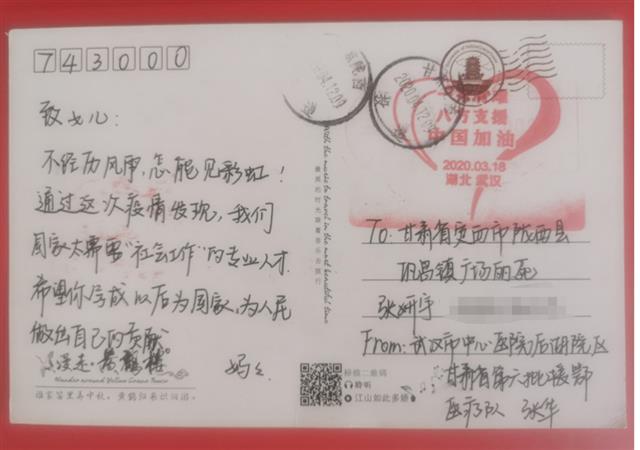 743000
致女儿：
不经历风雨，怎能见彩虹！
通过这次疫情发现，我们
国家太需要“社会工作”的专业人才.
希望你学成以后为国家，为人民
做出自己的贡献。
妈妈
漫走·黄鹤楼
Wander around Yellow Crane Tower
谁家笛里弄中秋，黄鹤归来识旧游。
with the music to travel in the most beautiful time
最美的时光跟着音乐去旅行
2020.04.12.09
八方支援
中国加油
2020.03.18
湖北 武汉
To: 甘肃省定西市陇西县
巩昌镇广场丽苑
张妍宇
From: 武汉市中心医院后湖院区
甘肃省第六批援鄂
医疗队 张华
扫描二维码
聆听
江山如此多娇